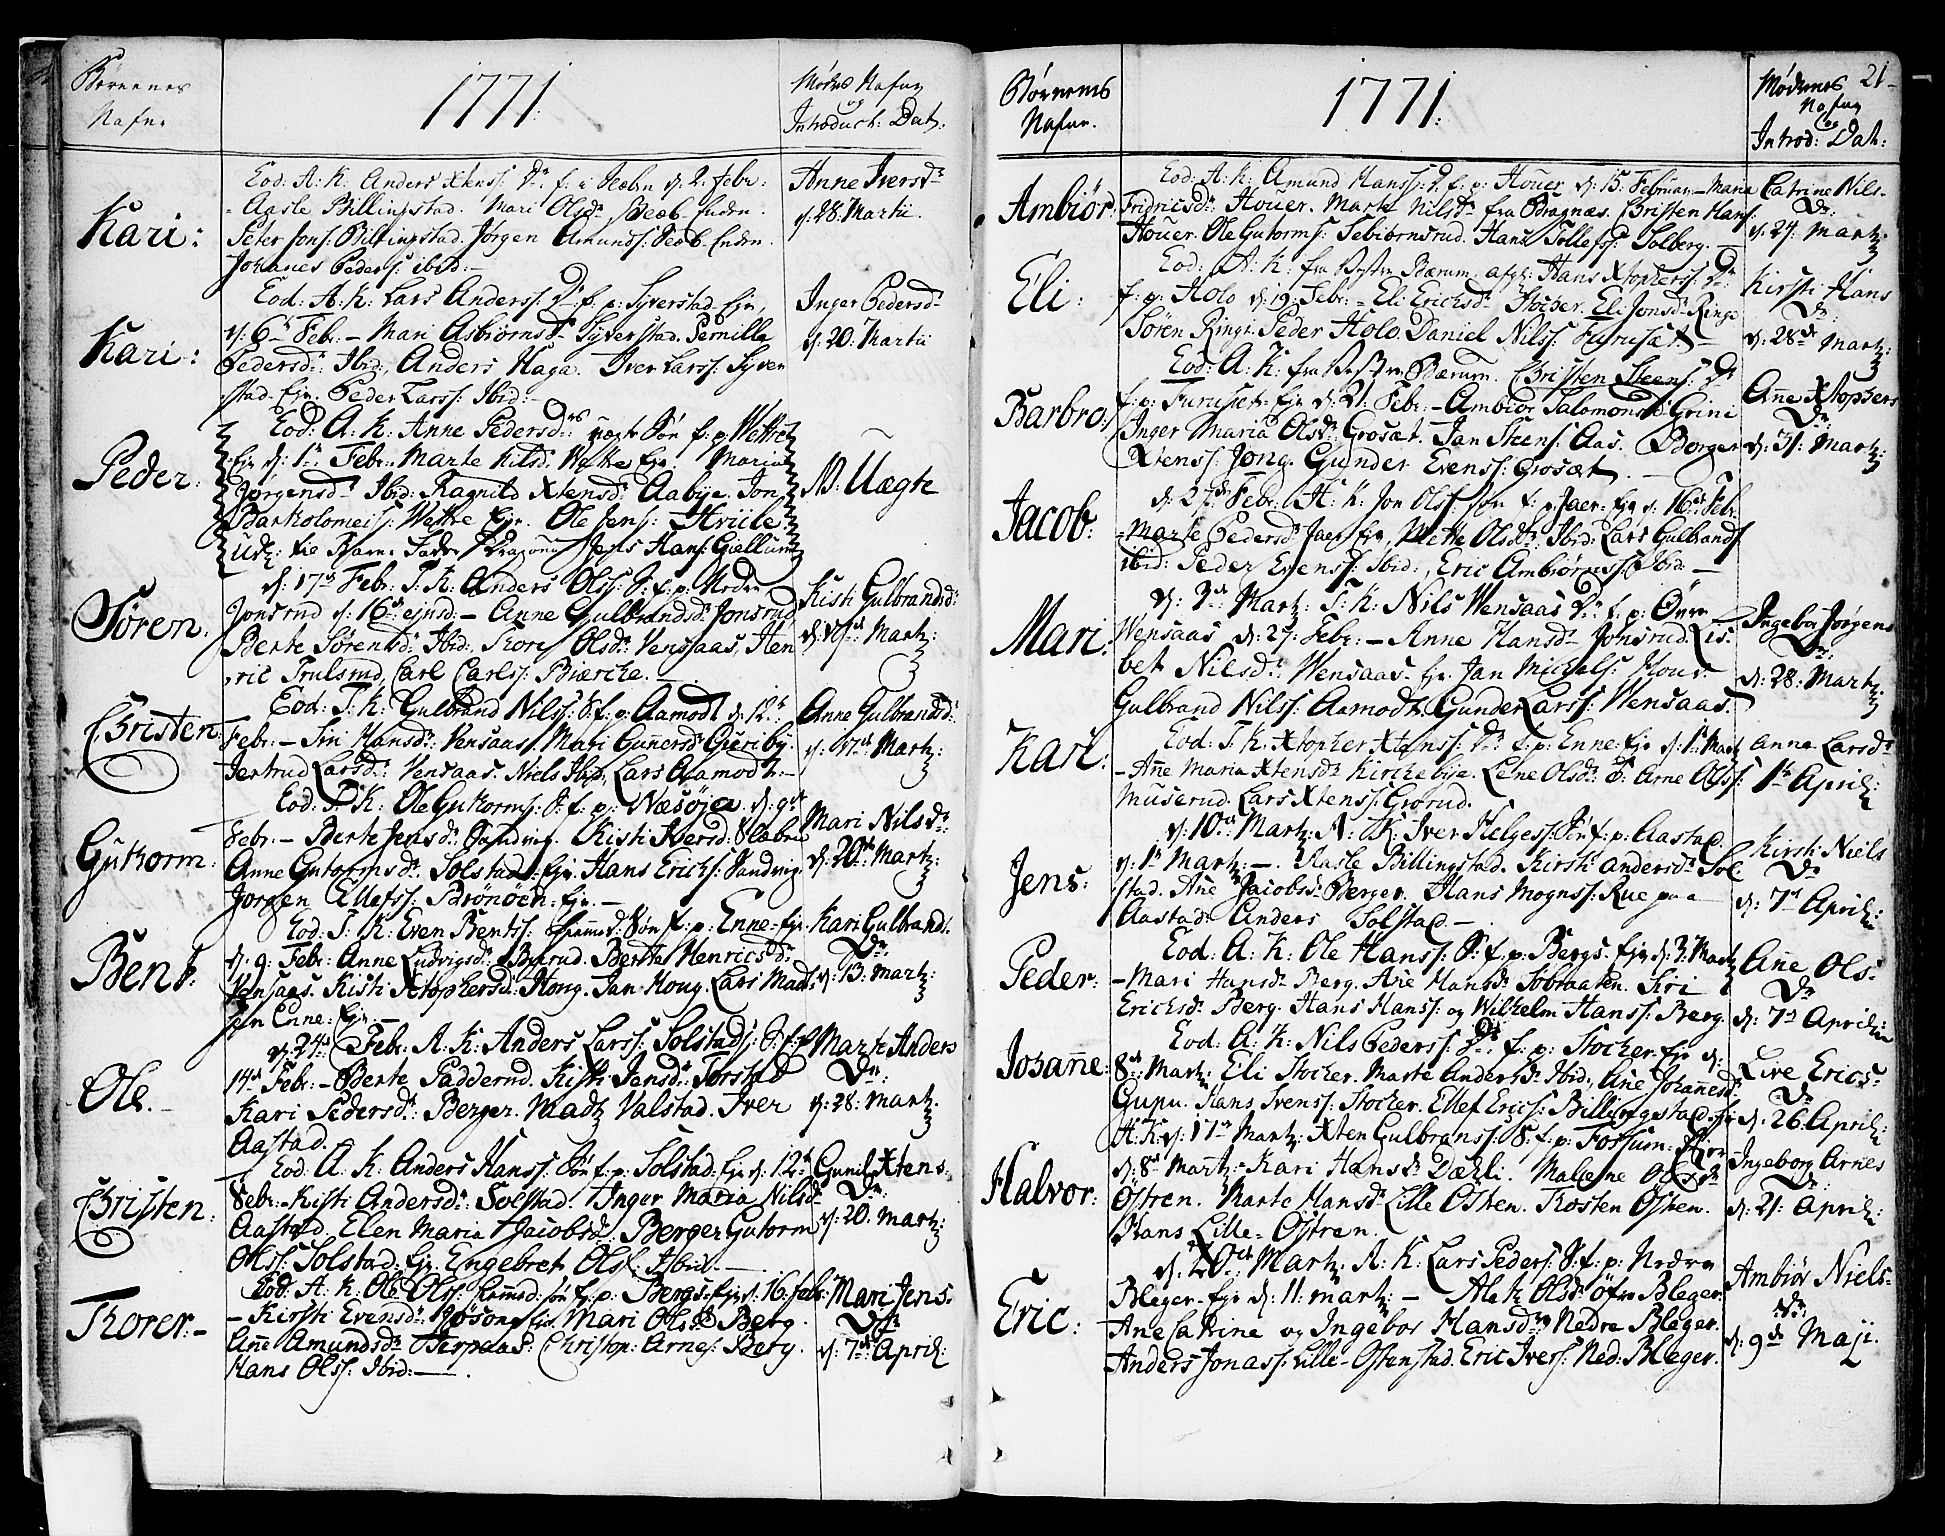 Børnenes
Nafne
1771.
Mødr: Nafne
og
Introduct: Dat:
Kari:
Eod: A: K: Anders Xtens: Dr f: i Neb. d. 2. Febr:
Aasle Billingstad. Mari Olsdr
Peter Jons: Billingstad. Jørgen Amunds:
Johanes Peders: ibid:
Anne Iversdr
d. 28. Martii.
Kari:
Eod: A: K: Lars Anderss: Dr f: p: Syverstad Eje,
d: 6te Febr. - Mari Asbiørnsdr Syverstad. Pernille
Pedersdr: Ibid, Anders Haga. Iver Larss: Syver
stad Eje. Peder Larss: Ibid:
Inger Pedersdr
d. 20. Martii
Peder.
Eod: A: K: Anne Pedersdrs: uægte Søn f: p: Wettre
Eje d: 1te Febr: Marte Nilsd: Wettre Eje. Maria
Jørgensdr Ibid: Ragnild Xtensdr: Aabye. Jon
Bartholomeis: Wettre Eje. Ole Jens: Hvile
Udl: til Barne Fader Dragoun Jens Hans: Giellum
N: Uægte
Søren.
d: 17de Febr: T: K: Anders Olss: S: f: p: Nedre
Jonsrud d: 16de ejusd: - Anne Gulbrandsdr Jonsrud
Berte Sørensdr Ibid: Tore Olsdr: Vensaas, Hen
ric Trulsrud, Carl Carlss: Biercke.
Kisti Gulbrandsdr:
d: 17de Martz:
Christen
Eod: T: K: Gulbrand Nilss: S: f: p: Aamodt d: 12te
Febr: - Siri Hansdr: Vensaas, Mari Guñersdr Gieriby.
Jertrud Larsdr: Vensaas. Niels Ibid, Lars Aamodt.
Anne Gulbrandsdr:
d. 17de Martz:
Gutorm:
Eod: T: K: Ole Gutorms: S: f: p: Næsøjen d: 9de
Febr: - Berte Jensdr: Sandvig. Kisti Iversd: Slæbend
Anne Gutormsdr: Solstad: Eje. Hans Ericks: Sandvig.
Jørgen Ellefss: Brønøen: Eje.
Mari Nilsdr:
d: 20de Martz:
Bent.
Eod: T: K: Even Bentss: Søn f: p: Enne: Eje
d: 9. Febr: Anne Ludvigsdr: Berte Henricsdr:
Vensaas. Kisti Xtophersd: Houg. Jan Houg. Lars Mad
sen Enne: Eje
Kari Gulbrand
Dr
d: 13. Martz:
Ole.
d: 24de Febr: A: K: Anders Larss: Solstads: S: f: p:
14de Febr: - Berte Padderud. Kisti Jensdr: Torstad
Kari Pedersdr: Berger. Madtz Valstad. Iver
Aastad.
Marte Anders
Dr:
d: 28. Martz.
Christen.
Eod: A: K: Anders Hanss: Søn f: p: Solstad: Eje d: 12te
Febr: Kisti Andersdr: Solstad. Inger Maria Nilsdr
Aastad. Elen Maria Jacobsdr Berger. Gutorm
Olss: Solstad: Eje. Engebret Olss: Ibid.
Gunild Xtens
Dr:
d: 20. Martz:
Torer.
Eod: A: K: Ole Olss: søn f: p: Bergs: Eje d: 16. Febr:
- Kirsti Evensdr: Mari Olsdr Berg.
Añe Amundsdr Terpaas: Christop: Arnes: Berg.
Hans Olss: Ibid:
Mari Jens
Dr
d: 7de April:
Børnenes
Nafne.
1771.
Mødrenes
Nafne
og
Introd: Dat:
21
Ambiør.
Eod: A: K: Amund Hanss: D: f: p: Houer d: 15. Februar. - Maria
Fridricsdr: Houer. Marte Nilsdr fra Dragnæs. Christen Hans:
Houer. Ole Gutorms: Tebiørnsrud. Hans Tollefs: Solberg.
Catrine Nils
Dr:
d: 27. Martz
Eli:
Eod: A: K: fra Vestre Bærum: afg: Hans Xtophers: Dr:
f: p: Holo d: 19. Febr: - Eli Ericksdr Stocker. Eli Jonsdr Ringe
Søren Ringi. Peder Holo. Daniel Nilss: Furuset
Kirsti Hans
Dr:
d: 28de Martz:
Barbro.
Eod: A: K: fra Vestre Bærum. Christen Steens: Dr
f: p: Furuset: Eje d: 21. Febr: - Ambiør Salomonsdr: Grini
Inger Maria Olsdr: Grosæt. Jan Steens: Aas. Borger
Xtenss: Jong. Gunder Evenss: Grosæt.
Añe Xtophers
Dr:
d: 31. Martz:
Jacob:
d: 27de Febr: H: K: Jon Olss: søn f: p: Jaer: Eje d: 16de Febr:
Marte Pedersdr Jaer Eje, Mette Olsdr: Ibid: Lars Gulbrands
ibid: Peder Evens: Ibid:, Eric Ambiørns: Ibid:
Mari.
d: 3de Martz: T: K: Nils Wensaas Dr: f: p: Øvre
Wensaas d: 27: Febr: - Anne Hansdr Jonsrud. Lis
bet Nilsdr: Wensaas. Eje. Jan Michels: Houg.
Gulbrand Nilss: Aamodt. Gunder Larss: Wensaas.
Ingebor Jørgens
Dr:
d: 28: Martz.
Kari.
Eod: T: K: Xtopher Xtenss: Dr: f: p: Enne: Eje d: 1te Martz
- Añe Maria Xtensdr Kirchebye. Lene Olsdr: Arne Olss:
Muserud. Lars Xtenss: Grorud.
Anne Larsdr:
1te April:
Jens:
d: 10de Martz: N: K: Iver Helgess: Søn f: p: Aastad.
d: 1te Martz: - Aasle Billingstad. Kirsti Andersdr Sol
stad. Añe Jacobsdr Berger. Hans Mognss: Rue paa
Aastad: Anders Solstad.
Kirsti Niels
Dr
d: 7de April:
Peder.
Eod: A: K: Ole Hanss: S: f: p: Bergs: Eje d: 3. Martz
- Mari Hansdr Berg. Añe Hansdr Sobraaten. Siri
Ericksdr Berg. Hans Hanss: og Wilhelm Hanss: Berg.
Añe Ols
Dr
d: 7de April:
Johañe:
Eod: A: K: Nils Pederss: Dr: f: p: Stocker: Eje d:
8de Martz: Eli Stocker. Marte Andersdr Ibid:, Añe Johañesdr:
Gupu. Hans Svenss: Stocker. Ellef Ericss: Billingstad: Eje
Live Erics
Dr
d: 26. April:
Halvor:
H: K: d: 17de Martz: Xten Gulbranss: S: f: p: Fossum: Eje
d: 8de Martz: Kari Hansdr Dæhli. Malene Olsdr
Østren. Marte Hansdr: Lille Østren. Torsten Østren.
Hans Lille Østren.
Ingeborg Arnes
Dr:
d: 21: April:
Eric:
d: 20de Martz: A: K: Lars Peders: S: f: p: Nedre
Bleger: Eje d: 11: Martz: - Alet Olsdr Øfre Bleger
Ane Catrine og Ingebor Hansdr: Nedre Bleger.
Anders Jonass: Lille Østenstad. Eric Ivers: Ned: Bleger.
Ambiør Niels
Dr:
d: 9de Maji.